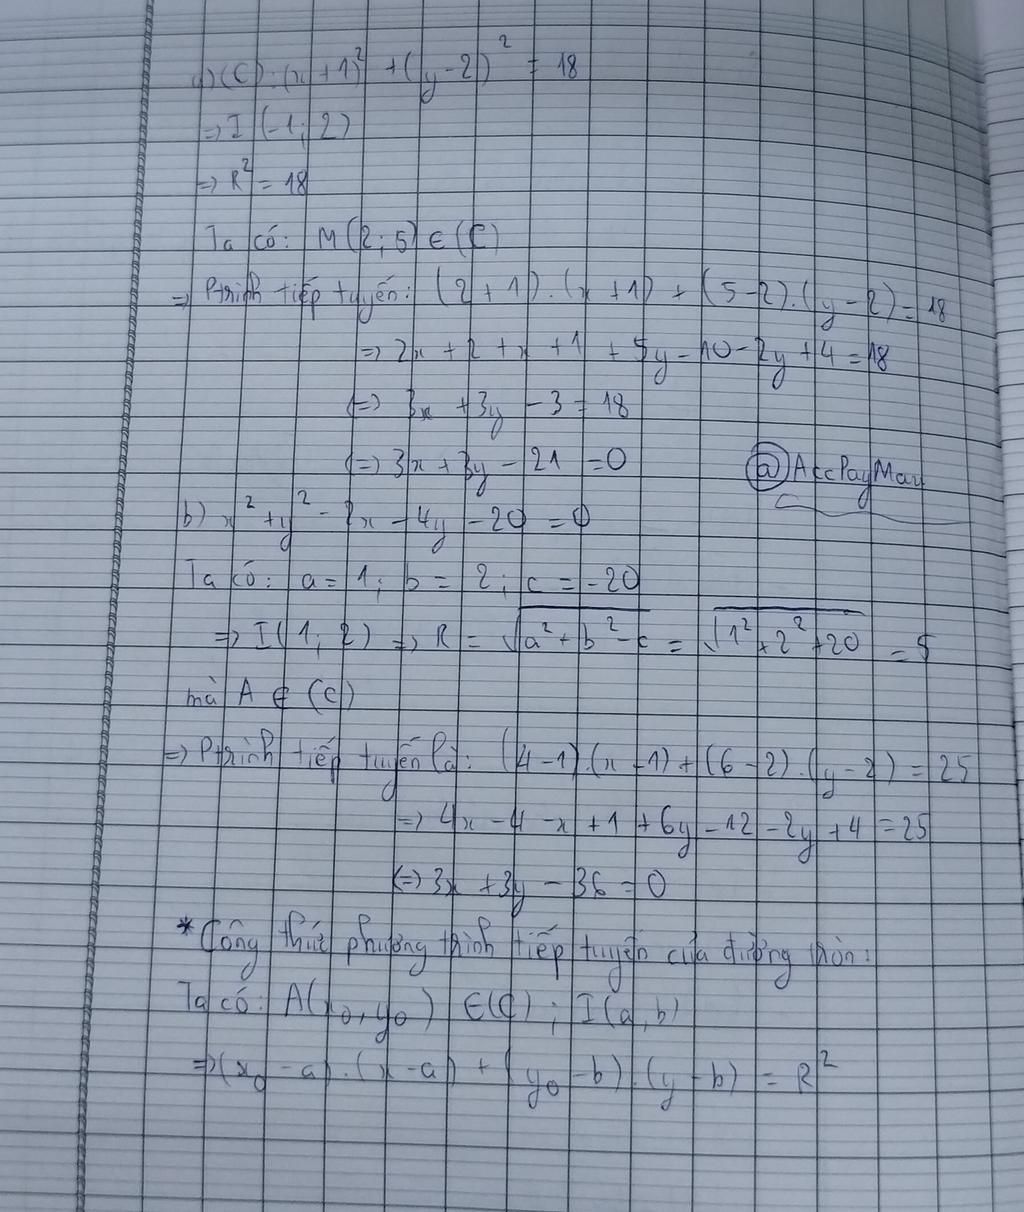 a) (C): (x+1)² + (y-2)² = 18
=> I (-1; 2)
=> R² = 18
Ta có: M(2; 5) ∈ (C)
=> Ptrình tiếp tuyến: (2+1).(x+1) + (5-2).(y-2) = 18
=> 2x + 2 + x + 1 + 5y - 10 - 2y + 4 = 18
<=> 3x + 3y - 3 = 18
<=> 3x + 3y - 21 = 0
@AccPayMay
b) x² + y² - 2x - 4y - 20 = 0
Ta có: a = 1; b = 2; c = -20
=> I(1; 2) => R = √(a² + b² - c) = √(1² + 2² + 20) = 5
mà A ∈ (C)
=> Ptrình tiếp tuyến là: (4-1).(x-1) + (6-2).(y-2) = 25
=> 4x - 4 - x + 1 + 6y - 12 - 2y + 4 = 25
<=> 3x + 3y - 36 = 0
* Công thức phương trình tiếp tuyến của đường tròn:
Ta có: A(x₀, y₀) ∈ (C); I(a, b)
=> (x₀ - a).(x - a) + (y₀ - b).(y - b) = R²